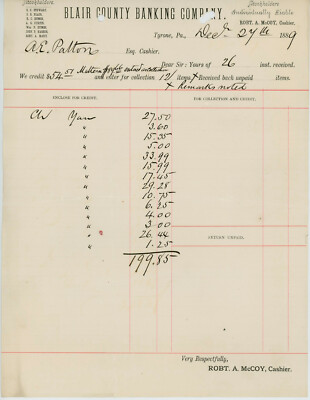 Stockholders
BLAIR COUNTY BANKING COMPANY.
Stockholders
Individually Liable
ROBT. A. McCOY, Cashier.
Tyrone, Pa., Dec 27th 1889
A.E. Patton Esq. Cashier.
Dear Sir: Yours of 26 inst. received.
We credit and enter for collection 12 items X Received back unpaid items.
X Remarks noted
ENCLOSE FOR CREDIT. FOR COLLECTION AND CREDIT.
27.50
" 3.60
" 15.35
" 5.00
" 33.99
" 15.99
" 17.45
" 29.28
" 10.75
" 6.25
" 4.00
" 3.00
" 26.44
" 1.25
199.85
RETURN UNPAID.
Very Respectfully,
ROBT. A. McCOY, Cashier.